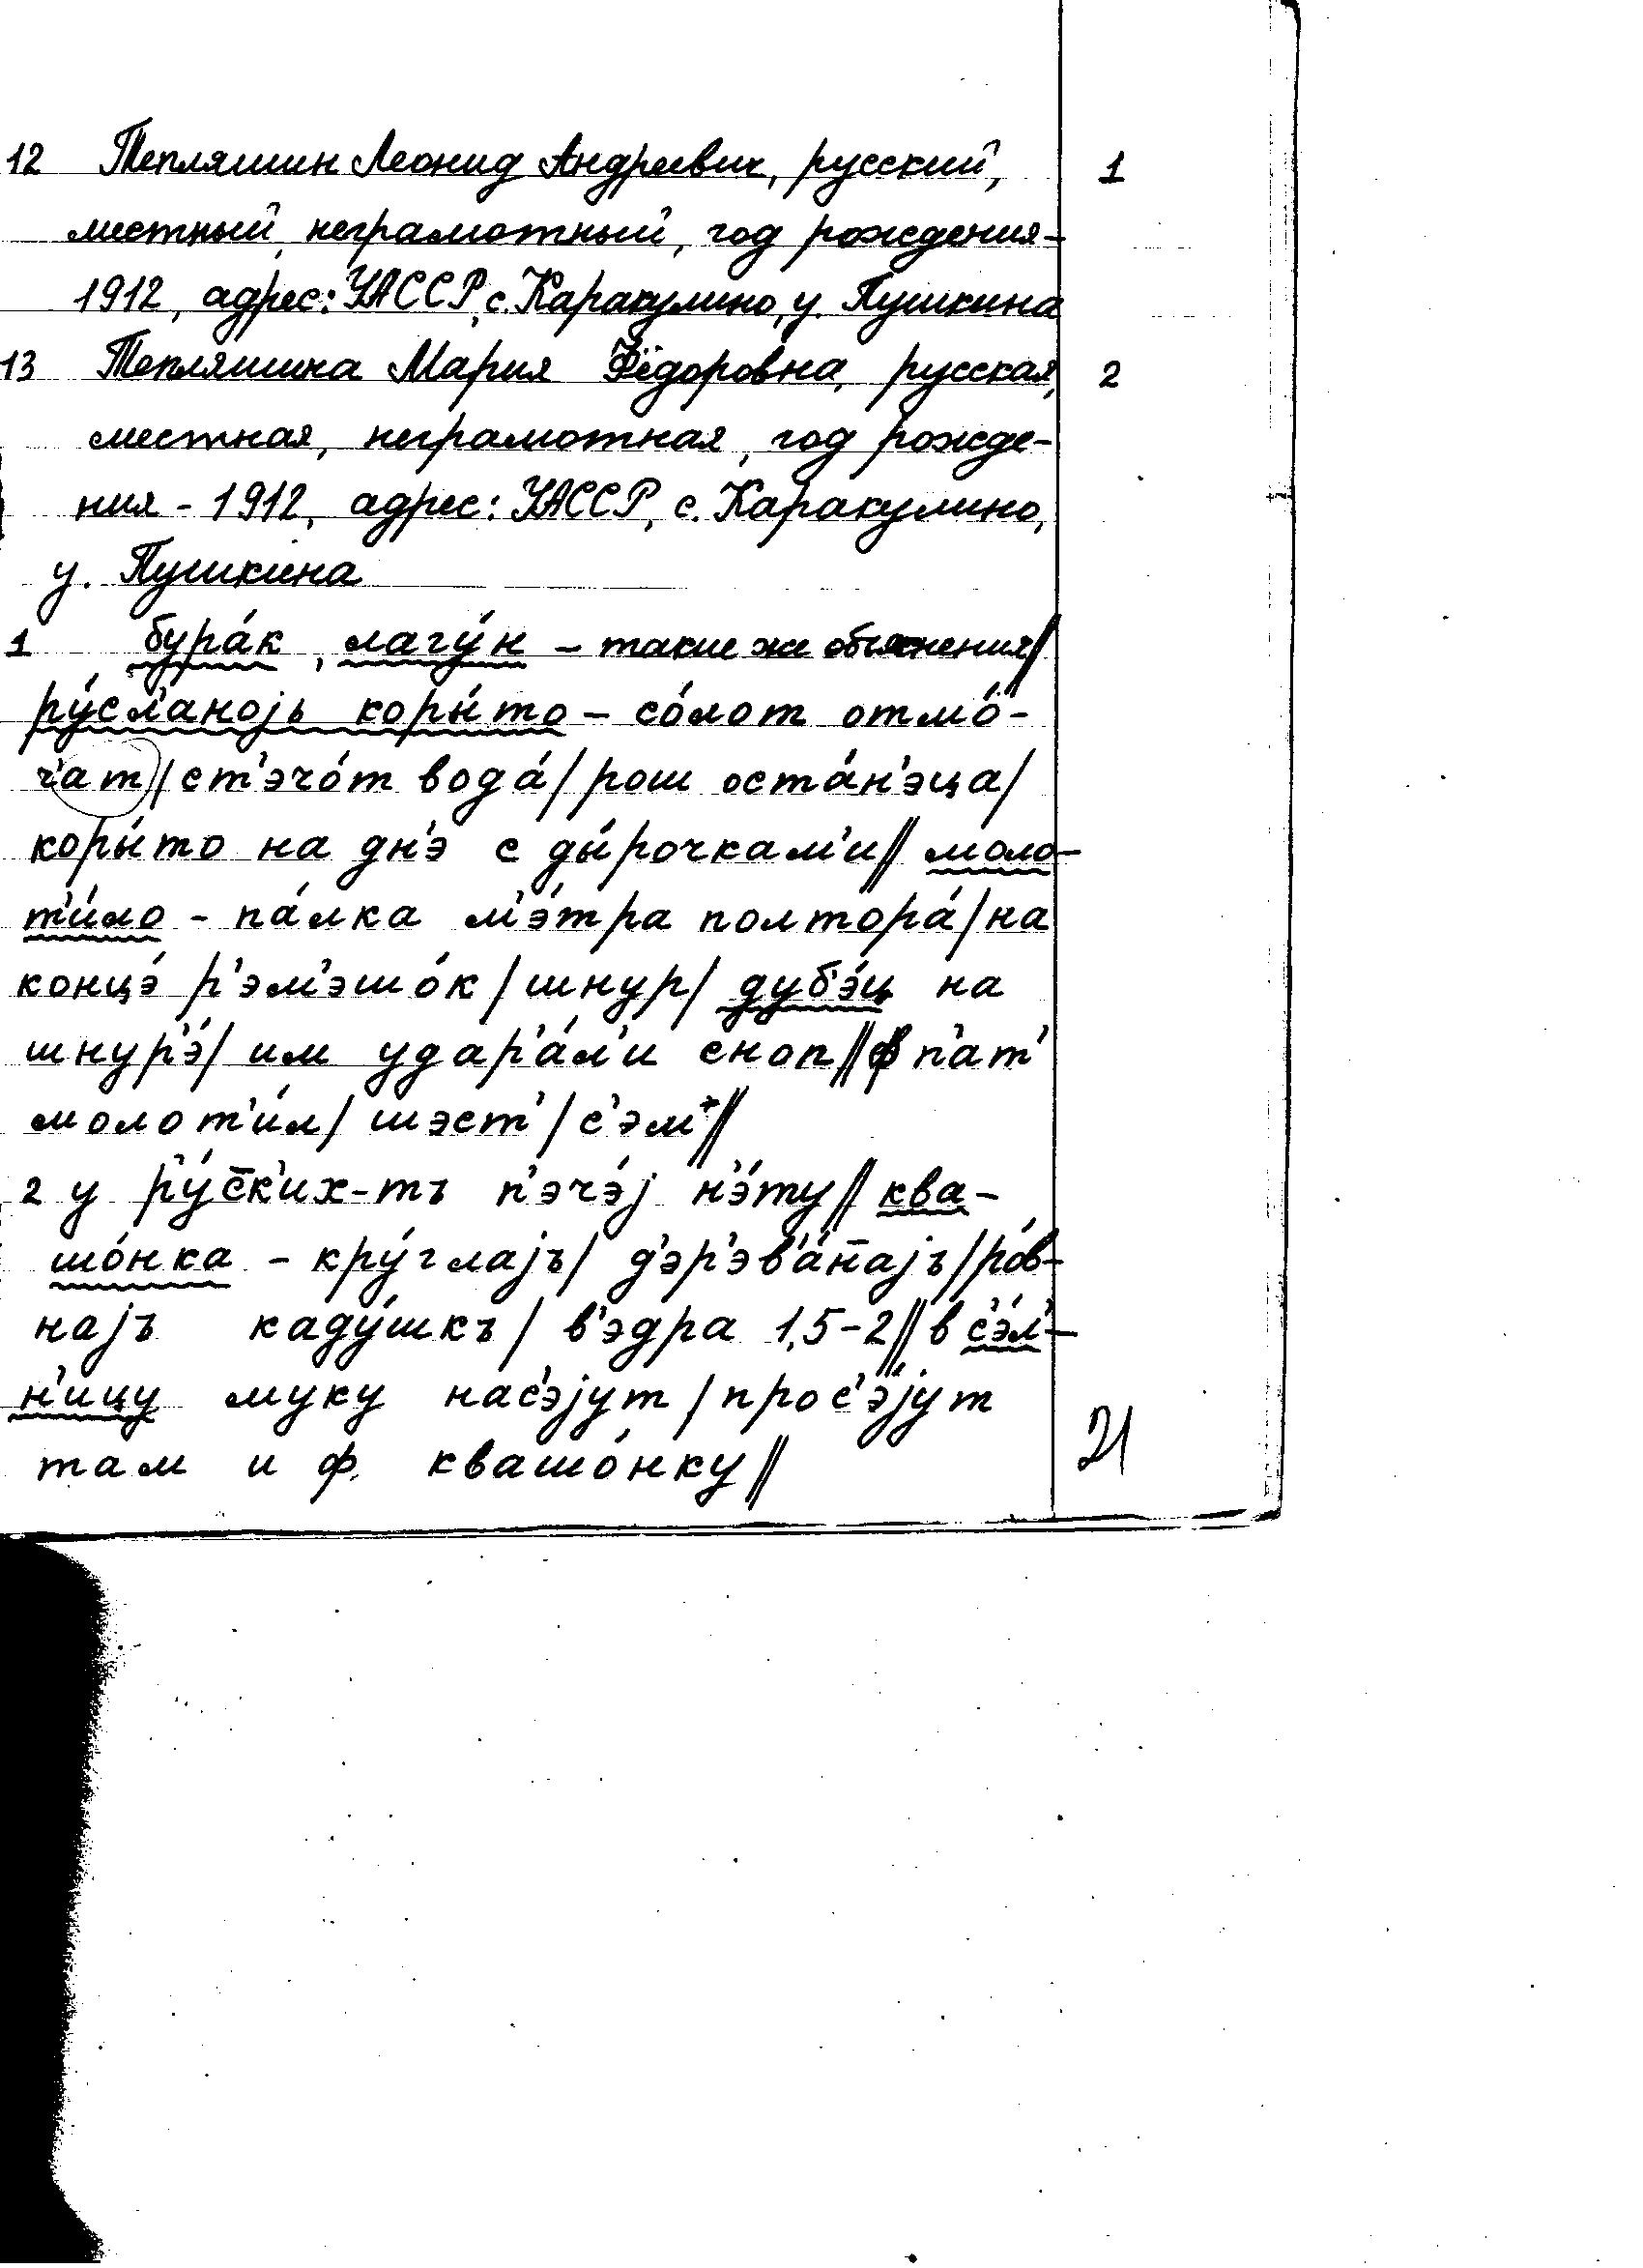 12 Тепляшин Леонид Андреевич, русский, 1
местный, неграмотный, год рождения-
1912, адрес: УАССР, с. Каракулино, у. Пушкина
13 Тепляшина Мария Фёдоровна, русская, 2
местная, неграмотная, год рожде-
ния - 1912, адрес: УАССР, с. Каракулино,
у. Пушкина
1 бура́к, лагу́н - такие же объяснения//
ру́сл'аноjь коры́то - со́лот отмо́-
ч'ат//ст'эчо́т вода́/рош оста́н'эца/
коры́то на дн'э с ды́рочкам'и// моло-
т'и́ло - па́лка м'э́тра полтора́/на
концэ́ р'эм'эшо́к/шнур/дуб'э́ц на
шнур'э́/им удар'а́л'и сноп//ф п'ат'
молот'и́л/шэст'/с'эм'//
2 у ру́с̄к'их-тъ п'эчэ́j н'э́ту//ква-
шо́нка - кру́глаjъ/д'эр'эв'а́н̄аjъ/ро́в-
наjъ каду́шкъ/в'эдра 1,5-2//в с'э́л'-
н'ицу муку нас'эjут/прос'э́jут
там и ф квашо́нку//
21